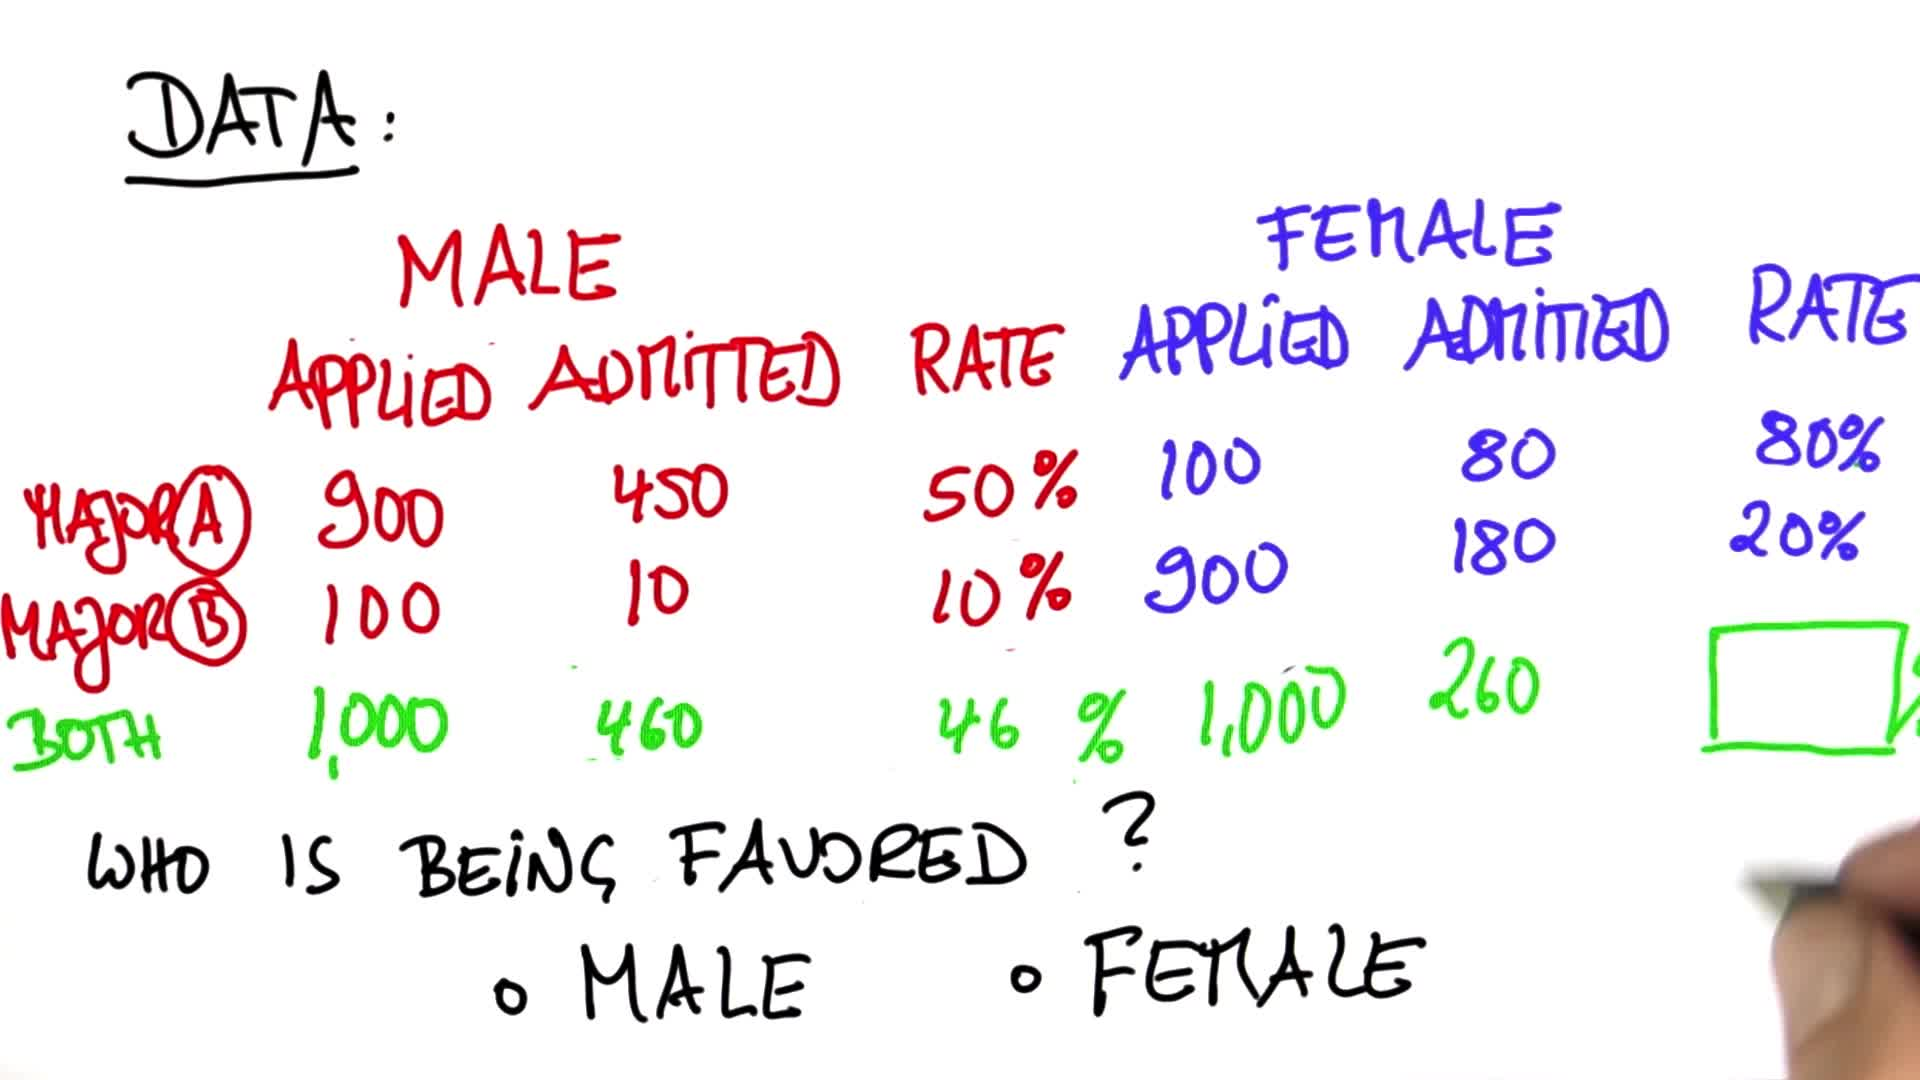 DATA:
MALE FEMALE
APPLIED ADMITTED RATE APPLIED ADMITTED RATE
MAJOR A 900 450 50% 100 80 80%
MAJOR B 100 10 10% 900 180 20%
BOTH 1,000 460 46 % 1,000 260 %
WHO IS BEING FAVORED ?
MALE FEMALE